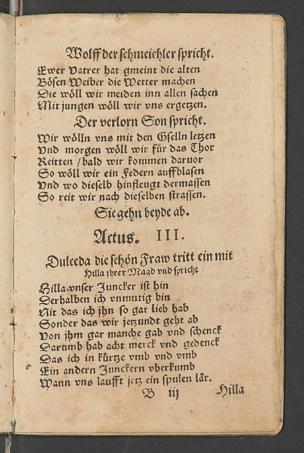 Wolff der schmeichler spricht.
Ewer Vatter hat gmeint die alten
Bösen Weiber die Wetter machen
Die wöll wir meiden inn allen sachen
Mit jungen wöll wir vns ergetzen.
Der verlorn Son spricht.
Wir wölln vns mit den Gselln letzen
Vnd morgen wöll wir für das Thor
Reitten / bald wir kommen daruor
So wöll wir ein Federn auffblasen
Vnd wo dieselb hinfleugt dermassen
So reit wir nach dieselben strassen.
Sie gehn beyde ab.
Actus. III.
Dulceda die schön Fraw tritt ein mit
Hilla jhrer Magd vnd spricht
Hilla vnser Juncker ist hin
Derhalben ich vnmutig bin
Nit das ich jhn so gar lieb hab
Sonder das wir jetzundt geht ab
Von jhm gar manche gab vnd schenck
Darumb hab acht merck vnd gedenck
Das ich in kürtze vmb vnd vmb
Ein andern Junckern vberkumb
Wann vns laufft jetz ein spulen lär.
B iij Hilla